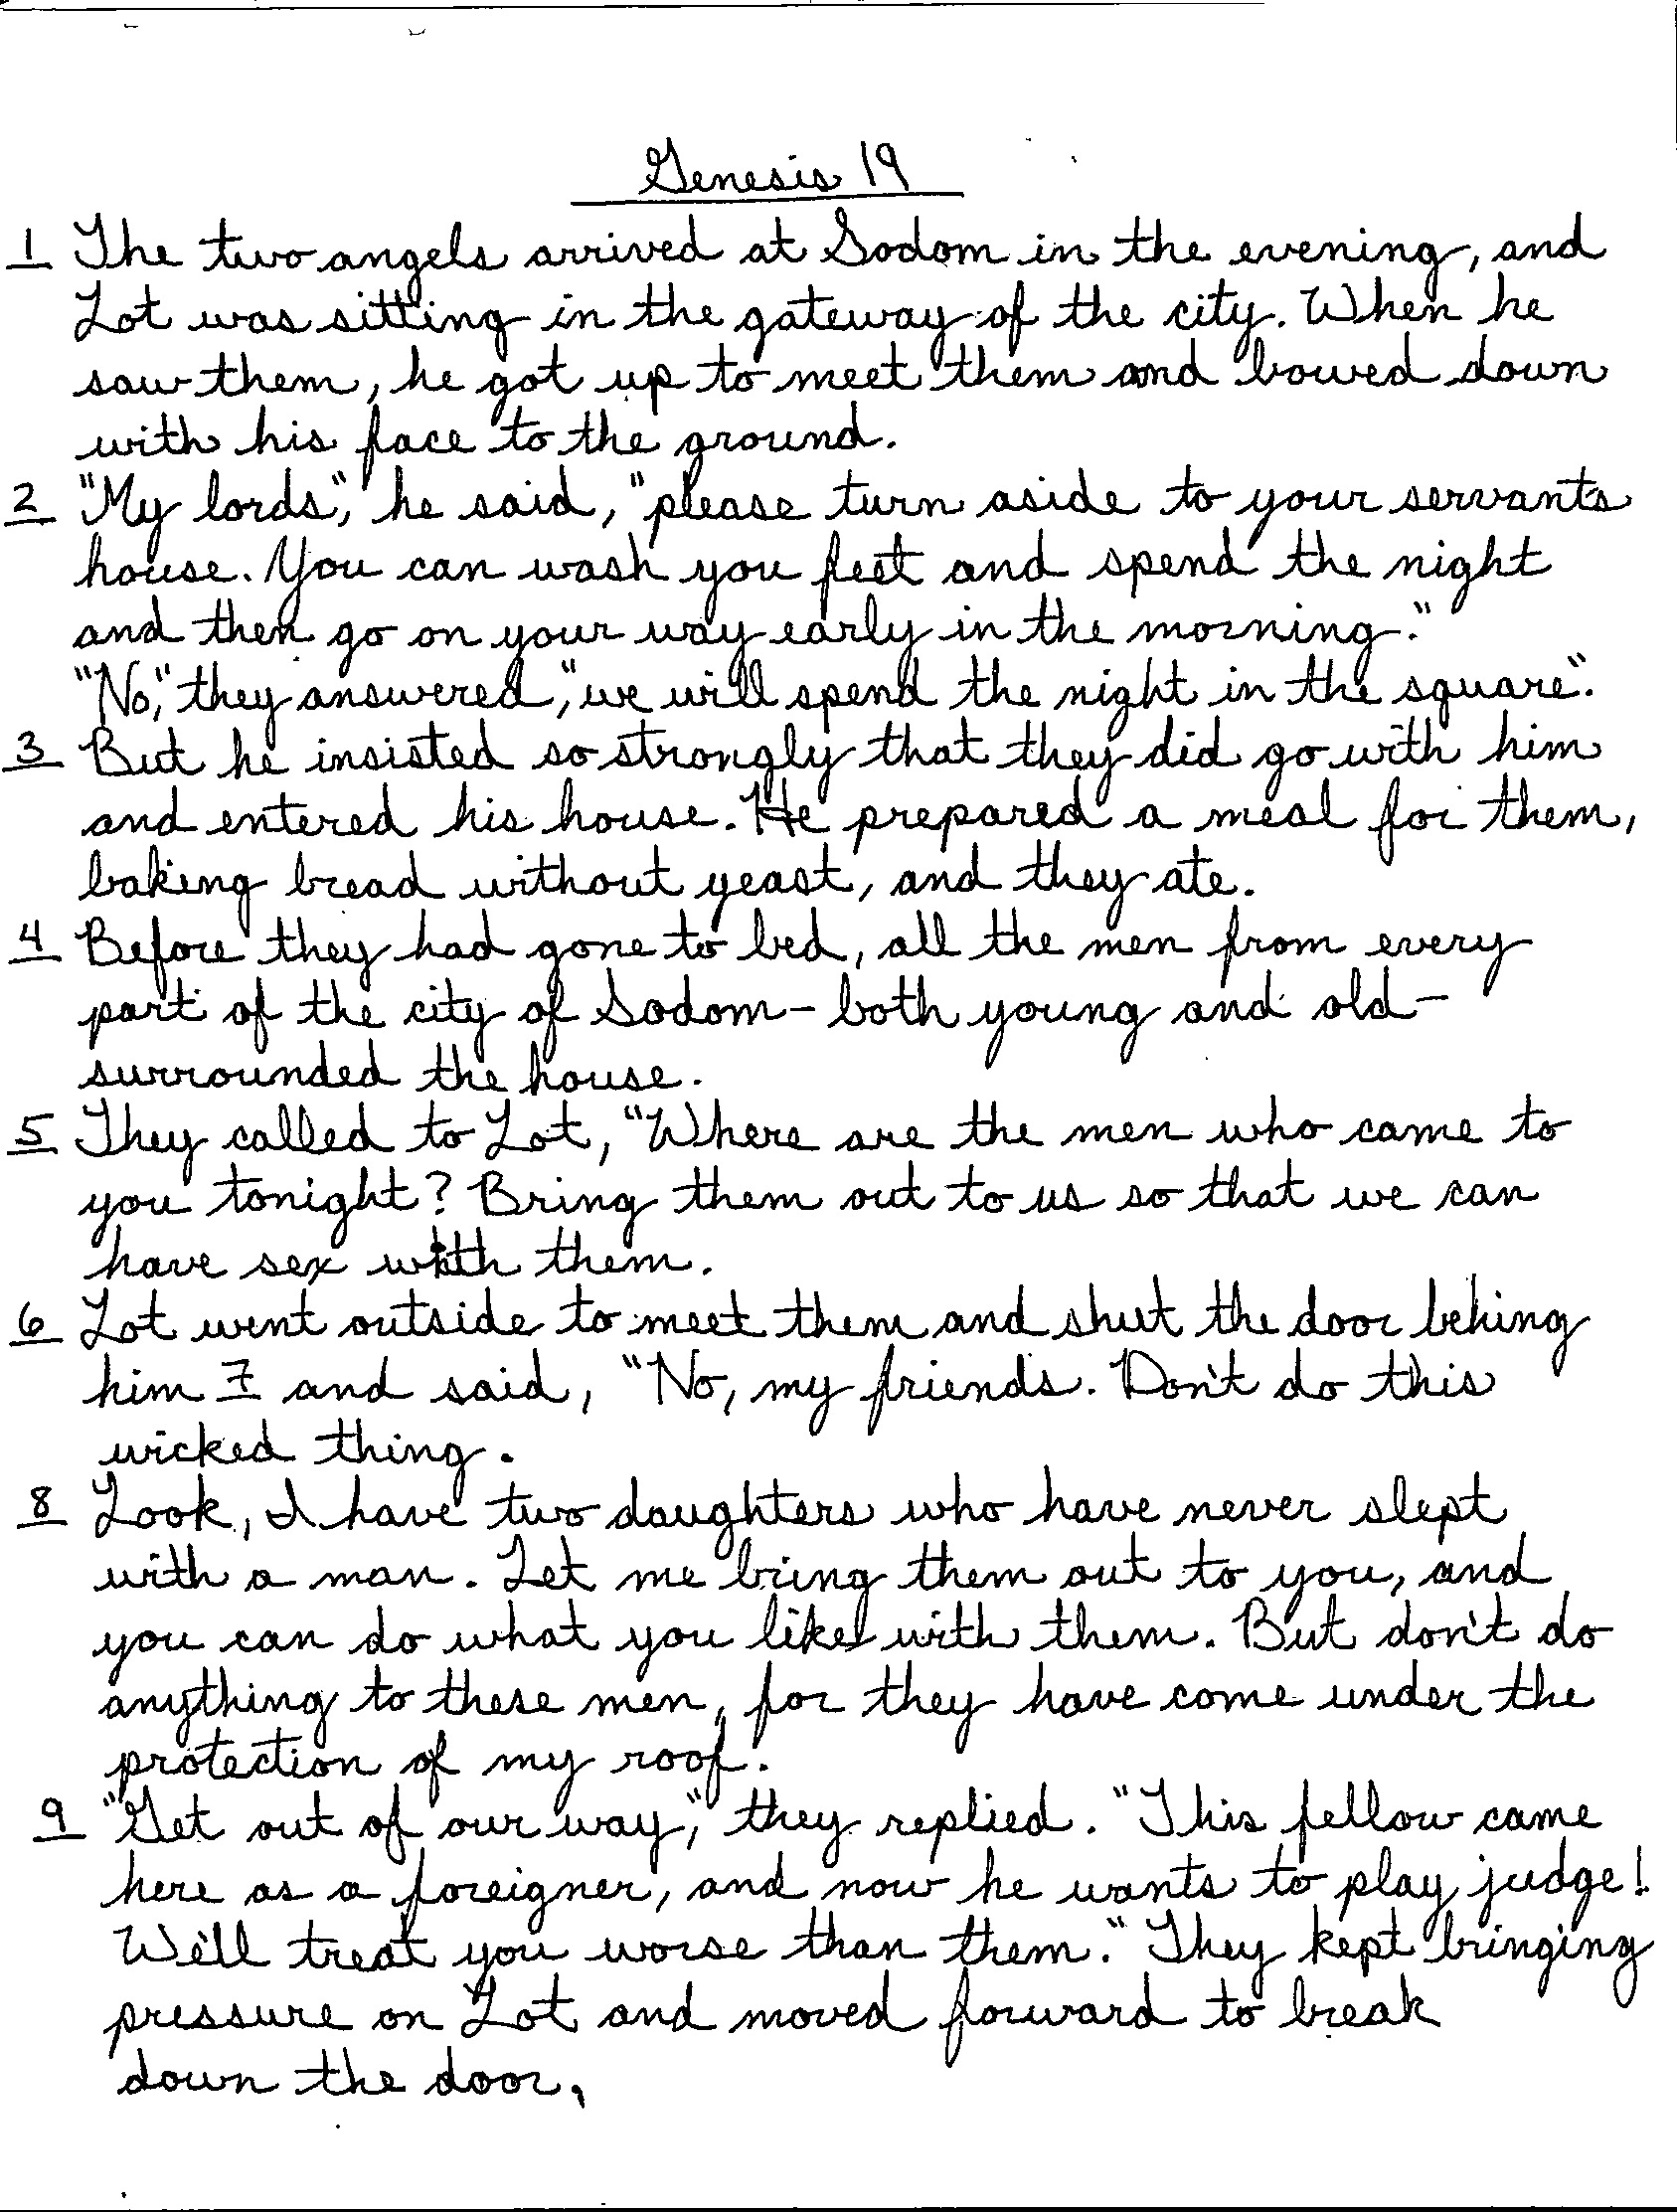 Genesis 19
1 The two angels arrived at Sodom in the evening, and
Lot was sitting in the gateway of the city. When he
saw them, he got up to meet them and bowed down
with his face to the ground.
2 "My lords," he said, "please turn aside to your servant's
house. You can wash you feet and spend the night
and then go on your way early in the morning."
"No," they answered, "we will spend the night in the square".
3 But he insisted so strongly that they did go with him
and entered his house. He prepared a meal for them,
baking bread without yeast, and they ate.
4 Before they had gone to bed, all the men from every
part of the city of Sodom - both young and old -
surrounded the house.
5 They called to Lot, "Where are the men who came to
you tonight? Bring them out to us so that we can
have sex with them.
6 Lot went outside to meet them and shut the door behing
him 7 and said, "No, my friends. Don't do this
wicked thing.
8 Look, I have two daughters who have never slept
with a man. Let me bring them out to you, and
you can do what you like with them. But don't do
anything to these men, for they have come under the
protection of my roof."
9 "Get out of our way," they replied. "This fellow came
here as a foreigner, and now he wants to play judge!
We'll treat you worse than them." They kept bringing
pressure on Lot and moved forward to break
down the door.